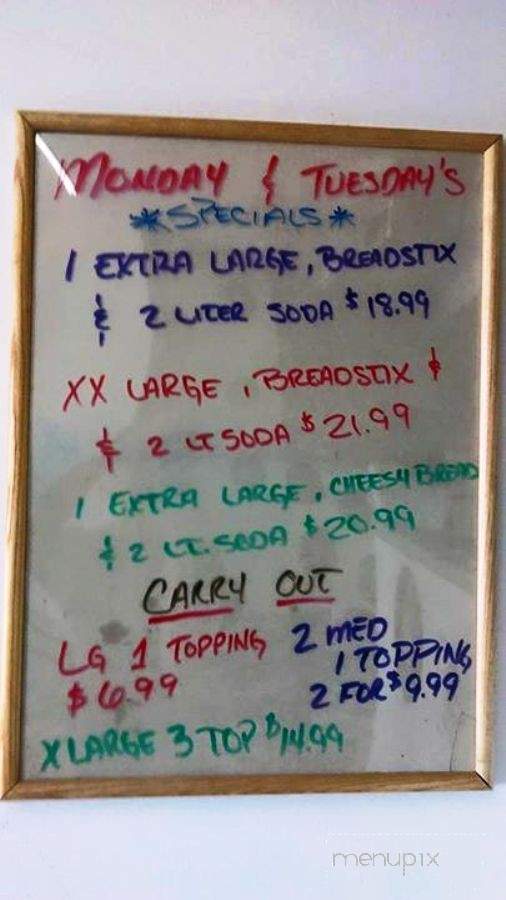 MONDAY & TUESDAY'S
*SPECIALS*
1 EXTRA LARGE, BREADSTIX
& 2 LITER SODA $18.99
XX LARGE, BREADSTIX &
& 2 LT SODA $21.99
1 EXTRA LARGE, CHEESY BREAD
& 2 LT. SODA $20.99
CARRY OUT
LG 1 TOPPING
$6.99
2 MED
1 TOPPING
2 FOR $9.99
X LARGE 3 TOP $14.99
menupix